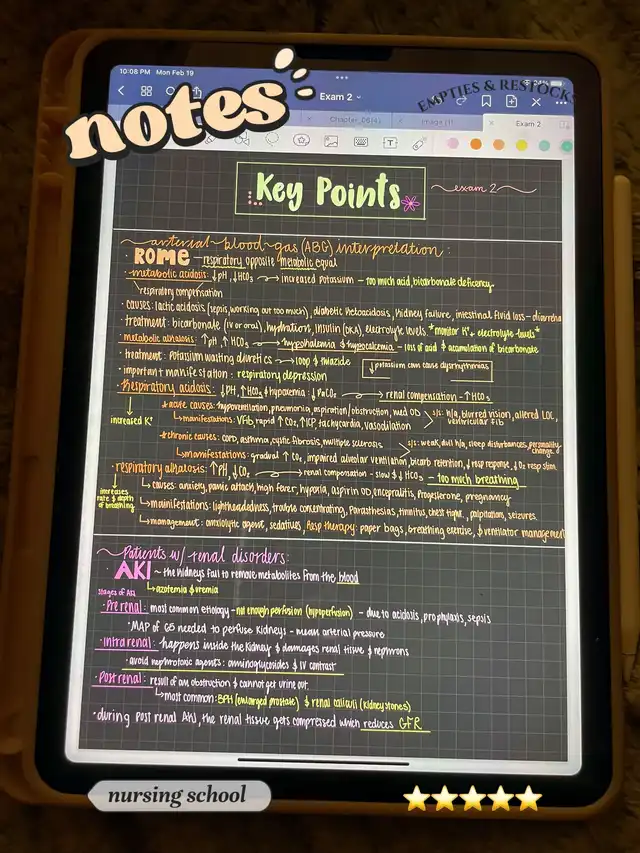 10:08 PM Mon Feb 19
notes
EMPTIES & RESTOCKS
Exam 2
Chapter_06(4)
Exam 2
Key Points
exam 2
arterial blood gas (ABG) interpretation:
ROME - respiratory opposite metabolic equal
metabolic acidosis: ↓pH, ↓HCO₃ → increased potassium - too much acid, bicarbonate deficency
↳ respiratory compensation
causes: lactic acidosis (sepsis, working out too much), diabetic ketoacidosis, kidney failure, intestinal fluid loss - diarrhea
treatment: bicarbonate (IV or oral), hydration, insulin (DKA), electrolyte levels, *monitor K+ electrolyte levels*
metabolic alkalosis: ↑pH ↑HCO₃ → hypokalemia & hypocalcemia - loss of acid & accumulation of bicarbonate
treatment: potassium wasting diuretics → loop & thiazide
important manifestation: respiratory depression
↓potassium can cause dysrhythmias
Respiratory acidosis: ↓pH, ↑HCO₃ & hypoxemia ↓PaCO₂ → renal compensation - ↑HCO₃
increased K+
*acute causes: hypoventilation, pneumonia, aspiration/obstruction, med OD
↳ manifestations: VFib, rapid ↑CO₂, ↑ICP, tachycardia, vasodilation
s/s: h/a, blurred vision, altered LOC, ventricular fib
*chronic causes: COPD, asthma, cystic fibrosis, multiple sclerosis
↳ manifestations: gradual ↑CO₂, impaired alveolar ventilation, bicarb retention, ↓resp response, ↓O₂ resp stim.
s/s: weak, dull h/a, sleep disturbances, personality change
respiratory alkalosis: ↑pH, ↓CO₂ → renal compensation - slow & ↓HCO₃ - too much breathing
increases rate & depth of breathing
↳ causes: anxiety, panic attack, high fever, hypoxia, aspirin OD, encephalitis, progesterone, pregnancy
↳ manifestations: lightheadedness, trouble concentrating, Parasthesias, tinnitus, chest tight., palpitation, seizures.
↳ management: anxiolytic agent, sedatives, Resp therapy: paper bags, breathing exercise, & ventilator management
Patients w/ renal disorders:
AKI ~ the kidneys fail to remove metabolites from the blood
↳ azotemia & uremia
stages of AKI
Pre renal: most common etiology - not enough perfusion (hypoperfusion) - due to acidosis, prophylaxis, sepsis
MAP of 65 needed to perfuse kidneys - mean arterial pressure
Intrarenal: happens inside the kidney & damages renal tissue & nephrons
avoid nephrotoxic agents: aminoglycosides & IV contrast
Post renal: result of an obstruction & cannot get urine out.
↳ most common: BPH (enlarged prostate) & renal calliculi (kidney stones)
during post renal AKI, the renal tissue gets compressed which reduces GFR
nursing school